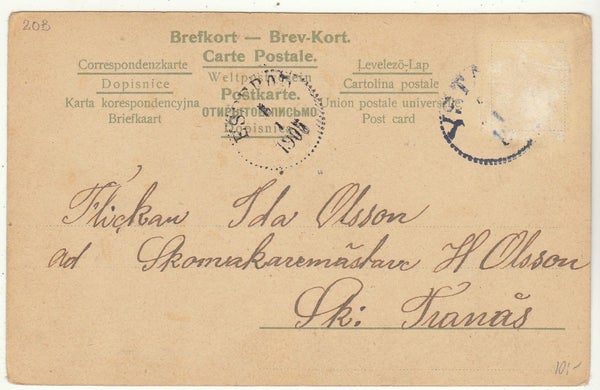 20B
Brefkort — Brev-Kort.
Carte Postale.
Correspondenzkarte
Levelező-Lap
Dopisnice
Weltpostverein
Cartolina postale
Karta korespondencyjna
Postkarte.
Union postale universelle
Briefkaart
ОТКРЫТОЕ ПИСЬМО
Post card
Dopisnica
1
1905
YSTA
Flickan Ida Olsson
ad Skomakaremästare H Olsson
Sk: Tranås
10:-